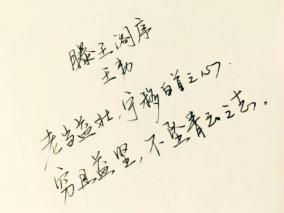 滕王阁序
王勃
老当益壮，宁移白首之心．
穷且益坚，不坠青云之志。